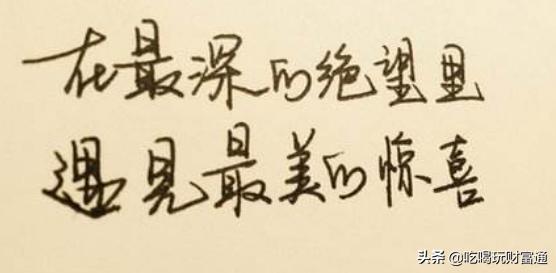 在最深的绝望里
遇见最美的惊喜
头条 @吃喝玩财富通